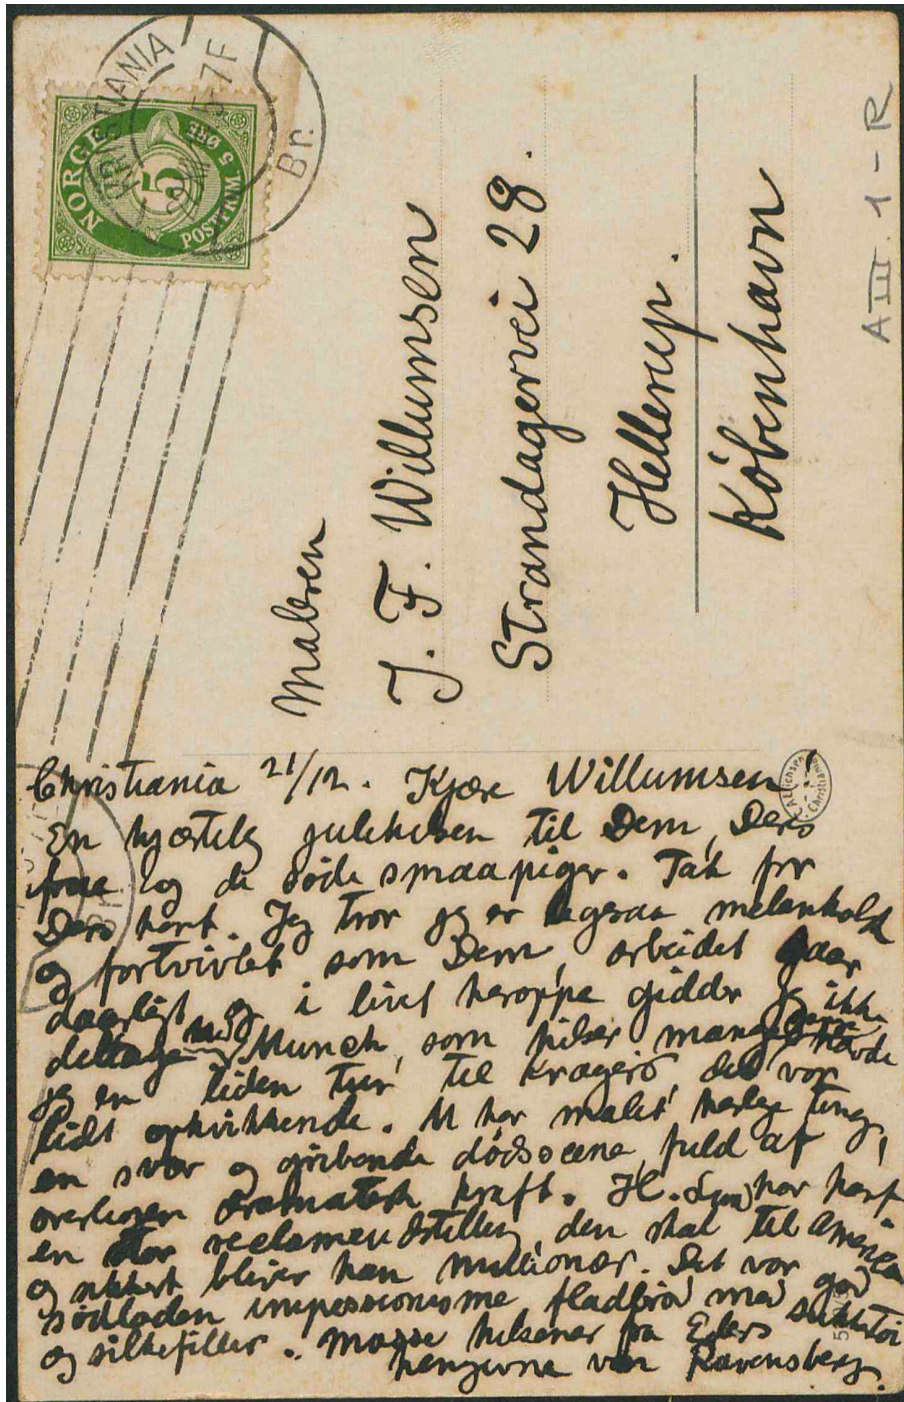 KRISTIANIA
5-7F
Br.
NORGE
5
POSTFRIM. 5 ØRE
A III. 1 - R
Maleren
J. F. Willumsen
Strandagervei 28.
Hellerup.
København
Christiania 21/12. Kjære Willumsen
En hjærtelig julehilsen til Dem, Deres
frue og de søde smaapiger. Tak for
Deres kort. Jeg tror jeg er ligesaa melankolsk
og fortvivlet som Dem, arbeidet gaar
daarligt og i livet heroppe gidder jeg ikke
deltage. Med Munch, som hilser mange gange havde
jeg en liden tur til Kragerø, det var
lidt opkvikkende. M har malet herlige ting,
en svær og gribende dødsscene, fuld af
overlegen dramatisk kraft. H. Lund har havt
en stor reclameudstilling, den skal til Amerika
og sikkert bliver han millionær. Det var
sødladen impessionisme, fladbrød med god
og silkefiller. Masse hilsener fra Eders
hengivne ven Ravensberg.